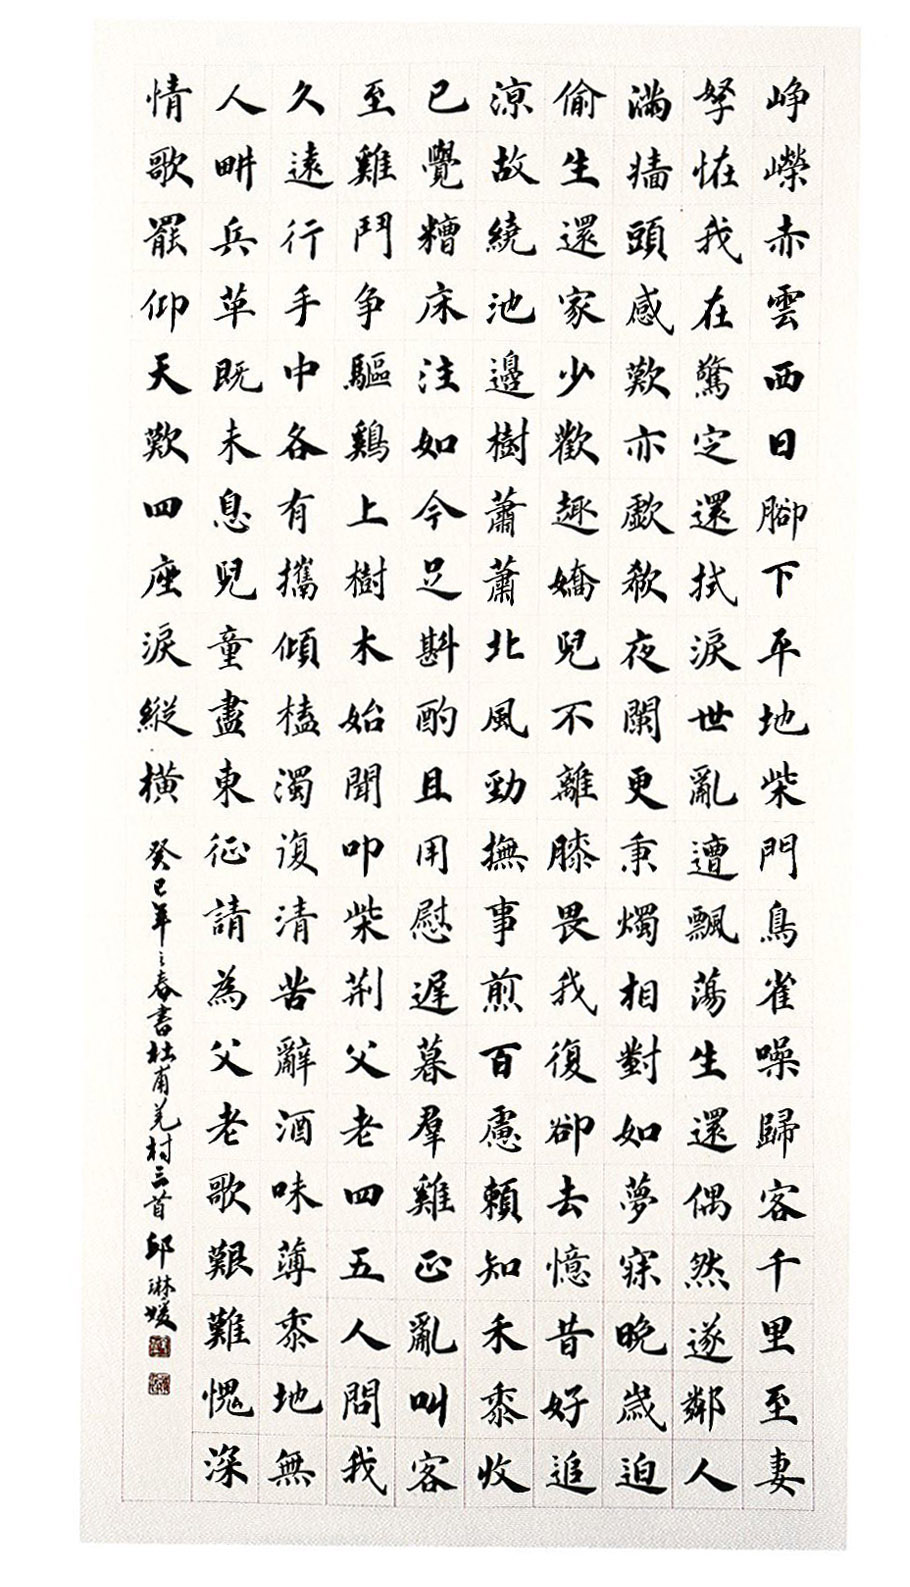 崢嶸赤雲西日腳下平地柴門鳥雀噪歸客千里至妻
孥恠我在驚定還拭淚世亂遭飄蕩生還偶然遂鄰人
滿牆頭感歎亦歔欷夜闌更秉燭相對如夢寐晚歲迫
偷生還家少歡趣嬌兒不離膝畏我復卻去憶昔好追
涼故繞池邊樹蕭蕭北風勁撫事煎百慮賴知禾黍收
已覺糟床注如今足斟酌且用慰遲暮羣雞正亂叫客
至雞鬥爭驅鷄上樹木始聞叩柴荊父老四五人問我
久遠行手中各有攜傾榼濁復清苦辭酒味薄黍地無
人畊兵革既未息兒童盡東征請為父老歌艱難愧深
情歌罷仰天歎四座淚縱橫 癸巳年之春書杜甫羌村三首 邱琳媛